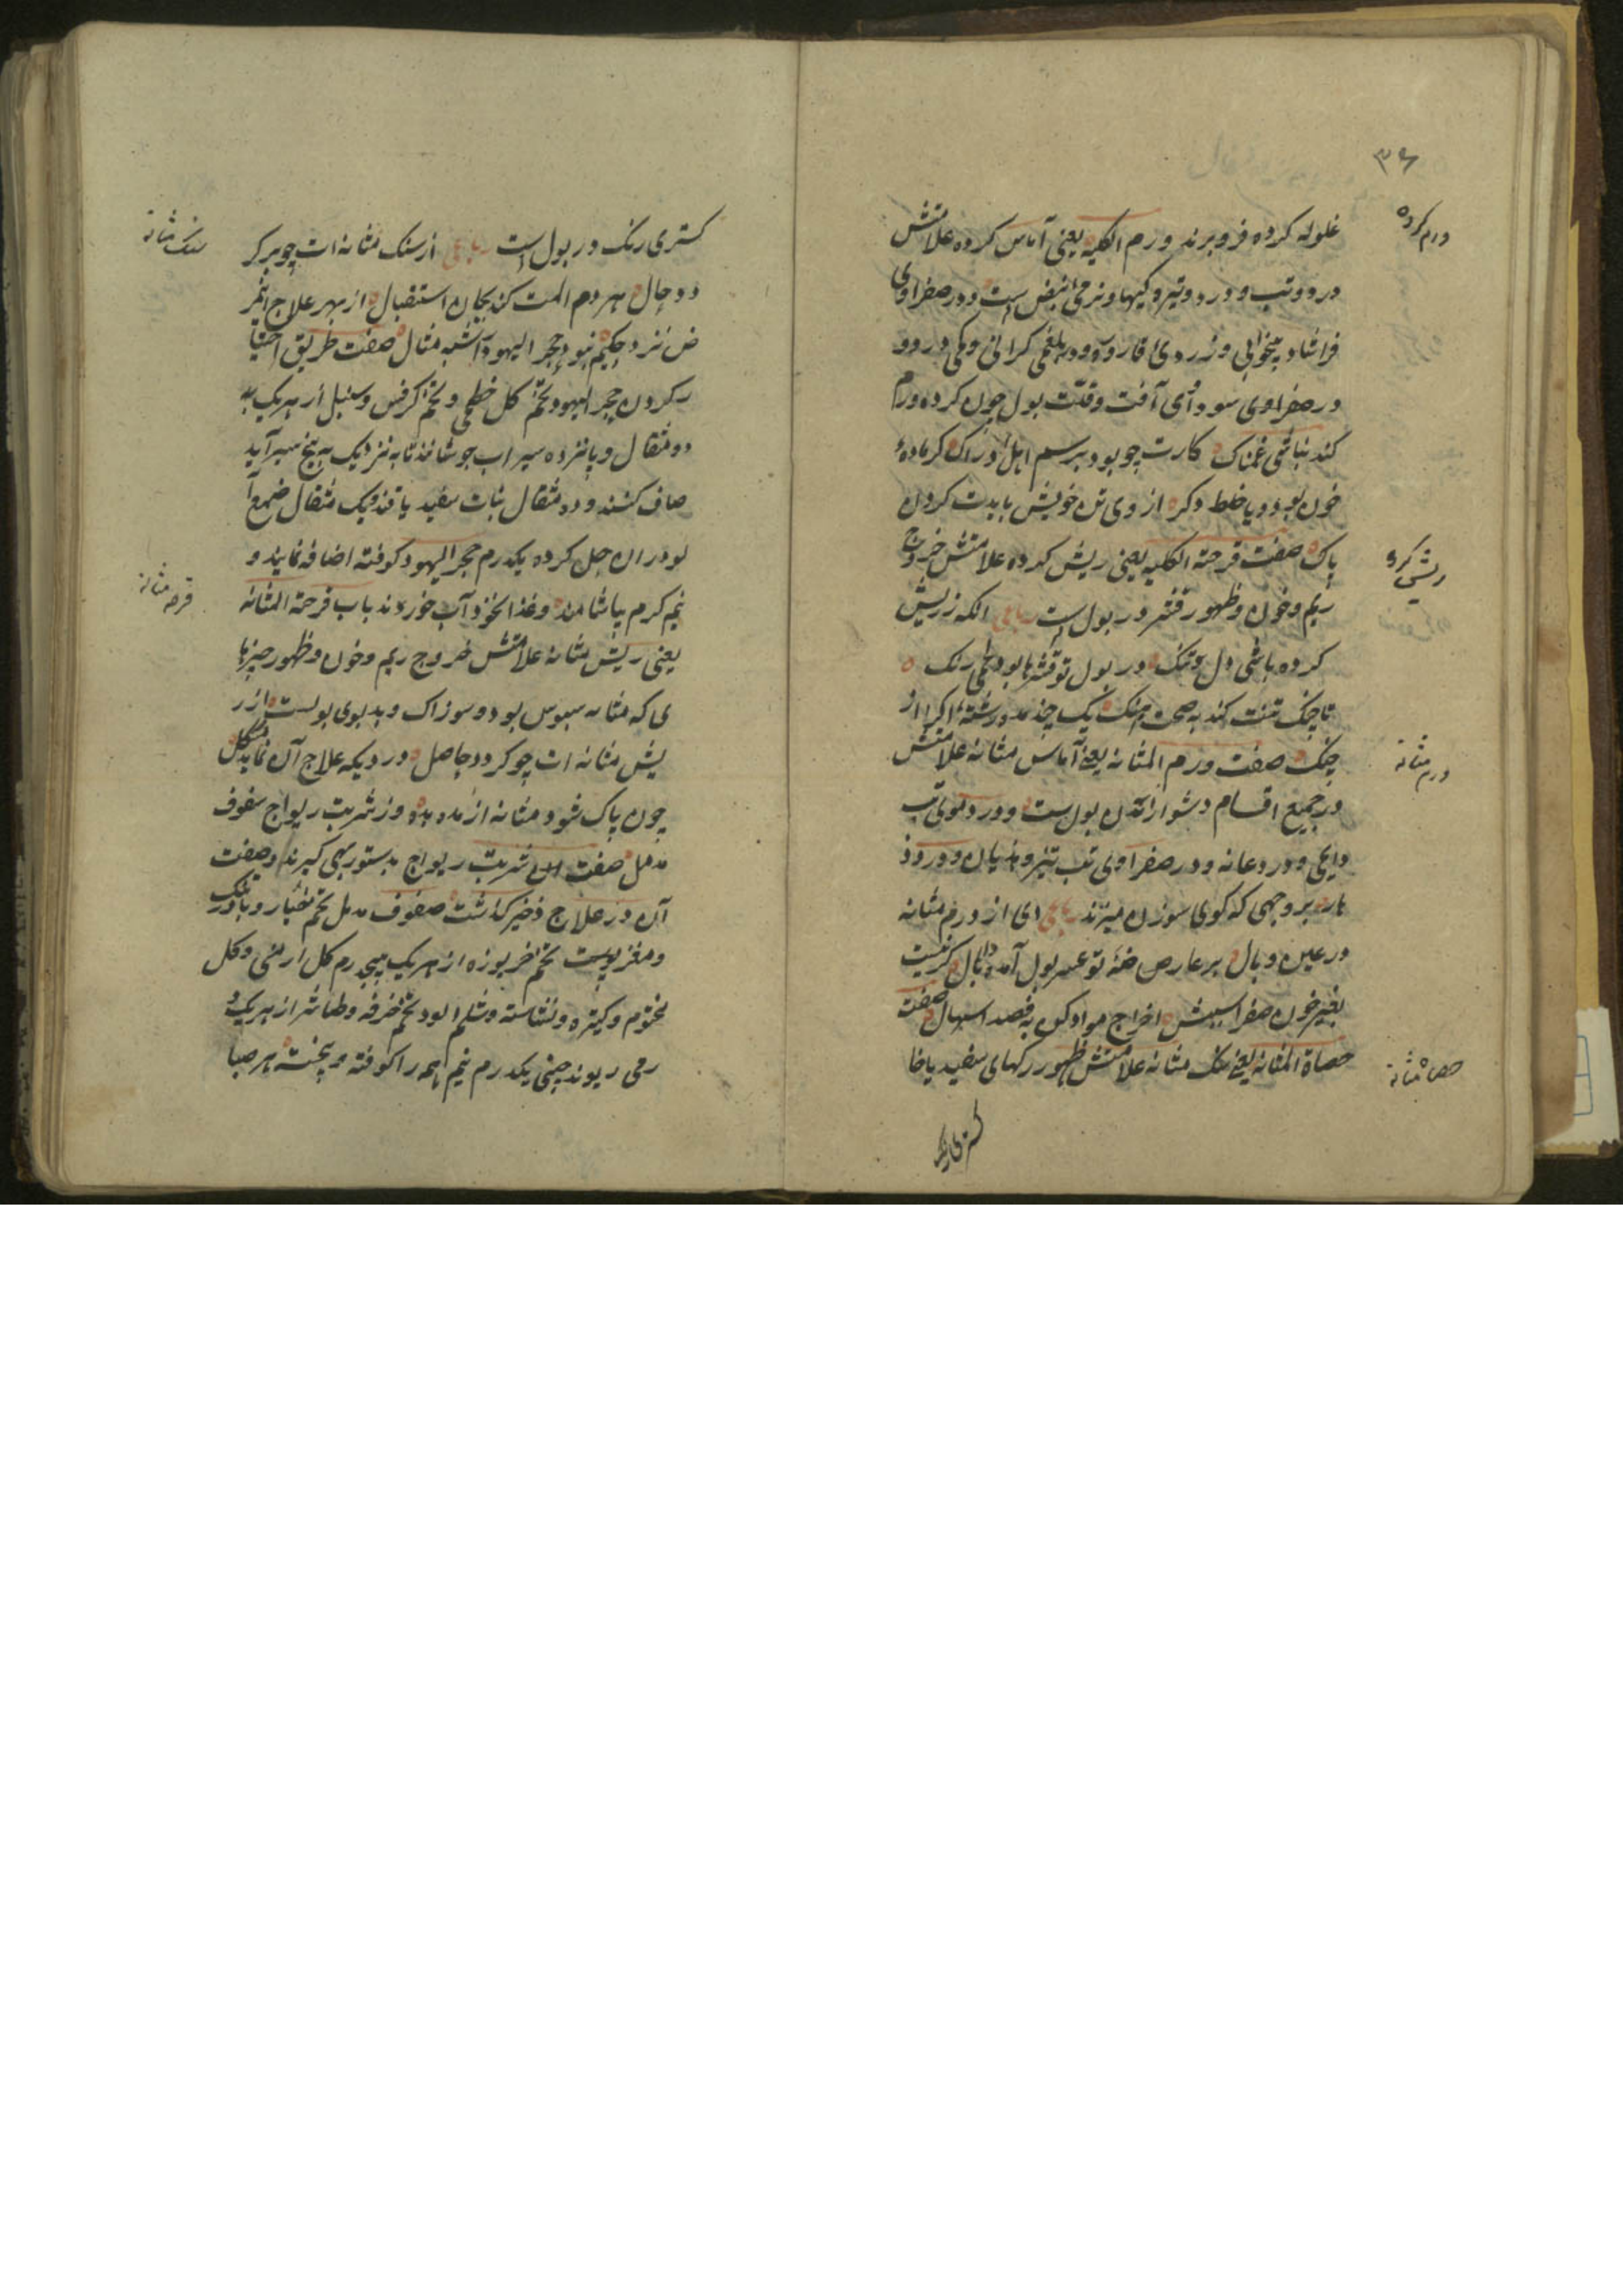 ۳۶
ورم کرده
غلوله کرده فرو برند ورم الکلیه یعنی آماس کرده علامتش
درد و تب و درد و تیره کیها و نرمی انبض است و در صفراوی
فراشا و بیخوابی و زردی قاروره و در بلغمی کرانی و کمی درد و
در صفراوی سودای آفت و قلت بول چون کرده ورم
کند نباشی غمناک کارت چو بود برسم اهل ادراک کر ماده
خون بود و یا خلط دکر از وی تن خویش بایدت کردن
پاک صفت قرحة الکلیه یعنی ریش کرده علامتش خروج
ریش کرده
ریم و خون و ظهور قشر در بول است رباعی الکه ز ریش
کرده باشی دل تنک در بول تو قشرها بود لحمی رنک
تا چنک تنت کند به صحت اهنک یک چند مده رشته اکرا از
چنک صفت ورم المثانه یعنی آماس مثانه علامتش
ورم مثانه
در جمیع اقسام دشوار آمدن بول است و در دموی تب
دایمی و درد عانه و در صفراوی تب تیز و هذیان و درد
بر وجهی که کوی سوزن میزند رباعی ای از ورم مثانه
در عین وبال بر عارض تو عسر بول آمده دال کر نیست
بغیر خون صفرا سببش اخراج مواد کن به فصد اسهال صفت
حصاة المثانه یعنی سنک مثانه علامتش ظهور رکهای سفید یا خا
حصاة مثانه
کستری رنک
سنک مثانه
کستری رنک در بول است رباعی از سنک مثانه ات چو بر کر
دد حال هر دم المت کند بجان استقبال از بهر علاج این مر
ض نزد حکیم نبود حجر الیهود را شبه مثال صفت طریق اختیا
ر کردن حجر الیهود تخم کل خطمی و تخم کرفس و سنبل از هر یک
دو مثقال و پانزده سیر اب جوشانند تا به نزدیک به پنج سیر آید
صاف کنند و ده مثقال نبات سفید یا قند و یک مثقال صمغ آ
لو در ان حل کرده یکدرم حجر الیهود کوفته اضافه نمایند و
نیم کرم بیاشامند و غذا نخود آب خورند باب قرحة المثانه
قرحه مثانه
یعنی ریش مثانه علامتش خروج ریم و خون و ظهور چیزها
ی که مثانه سبوس بود و سوزاک و بد بوی بولست از ر
یش مثانه ات چو کردد حاصل دردیکه علاج آن نماید مشکل
چون پاک شود مثانه از مده بده وز شربت ریواج سفوف
مدمل صفت ان شربت ریواج بدستور بهی کیرند و صفت
آن در علاج ذخیر کذشت صفوف مدمل تخم خیار و بادرنک
و مغز پوست تخم خربوزه از هر یک پنجدرم کل ارمنی و کل
مختوم و کتیره و نشاسته و شلم الود تخم خرفه و طباشر از هر یک
رمی ریوند چینی یکدرم نیم همه را کوفته و بیخته هر صبا